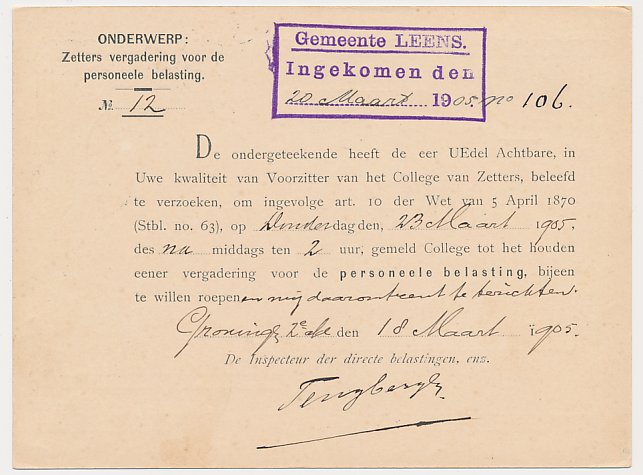 ONDERWERP:
Zetters vergadering voor de
personeele belasting.
No 12
Gemeente LEENS.
Ingekomen den
20 Maart 1905. no 106.
De ondergeteekende heeft de eer UEdel Achtbare, in
Uwe kwaliteit van Voorzitter van het College van Zetters, beleefd
te verzoeken, om ingevolge art. 10 der Wet van 5 April 1870
(Stbl. no. 63), op Donderdag den, 23 Maart 1905.
des na middags ten 2 uur, gemeld College tot het houden
eener vergadering voor de personeele belasting, bijeen
te willen roepen en mij daaromtrent te berichten.
Groning 2e afd den 18 Maart 1905.
De Inspecteur der directe belastingen, enz.